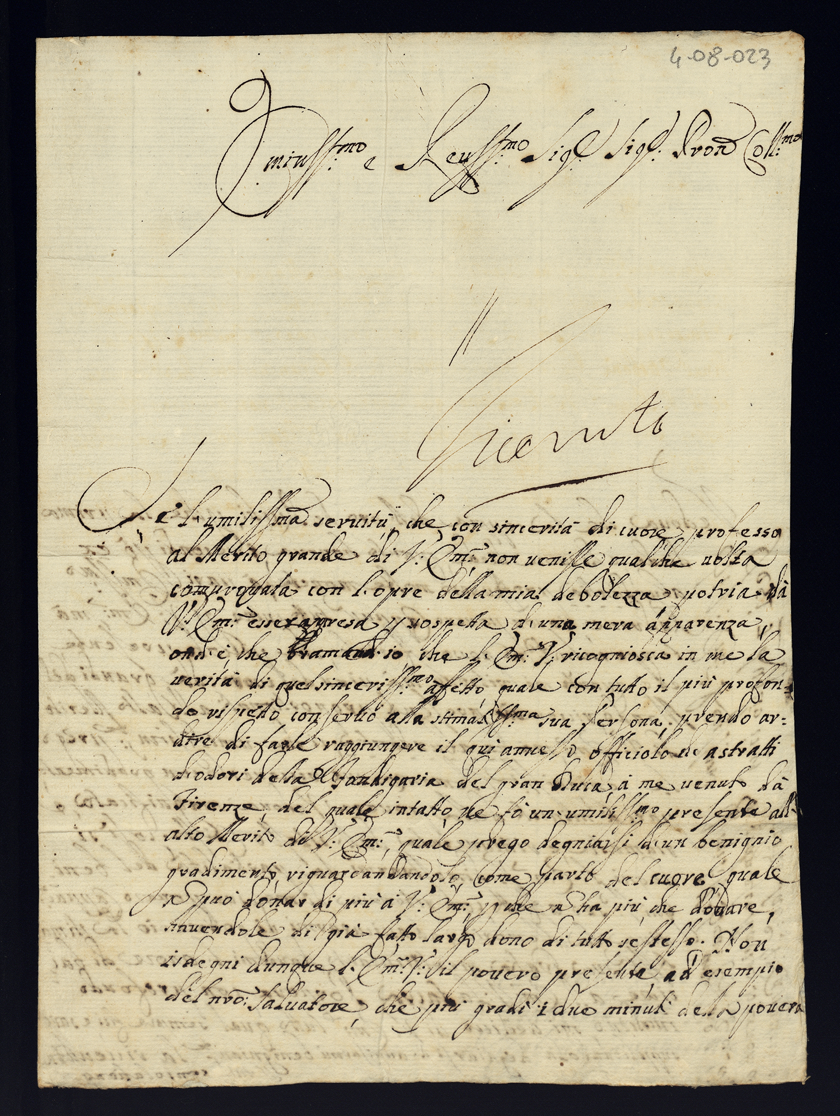 4-08-023
Eminss:mo e Reuss:mo Sig:e Sig:e Pron Coll:mo
Riceuuta
Se l'umilissima seruitù, che con sincerità di cuore professo
al Merito grande di V: Em:a non uenisse qualche uolta
comprouata con l'opre della mia debolezza, potria dà
V: Em:a esser apresa p sospetta d'una mera apparenza,
ond'è che bramand'io che l'Em:a V: ricogniosca in me là
uerità di quel sinceriss:mo afetto, quale con tutto il più profon-
do rispetto conseruo alla stimatiss:ma sua Persona, prendo ar-
dire di farle raggiungere il qui annesso officiolo di astratti
d'odori della fondigaria del gran Duca, à me uenuto dà
Firenze, del quale intatto ne fò un umilissimo presente all'
alto Merito di V: Em:a, quale prego degniarsi d'un benignio
gradimento, riguardandolo come parto del cuore, quale
n può donar di più à V: Em:a, p che n hà più che donare,
hauendole di già fatto largo dono di tutto se stesso. Non
isdegni dunque l'Em:a V: il pouero presente ad esempio
del nro: Saluatore, che più gradì i due minuti della pouera